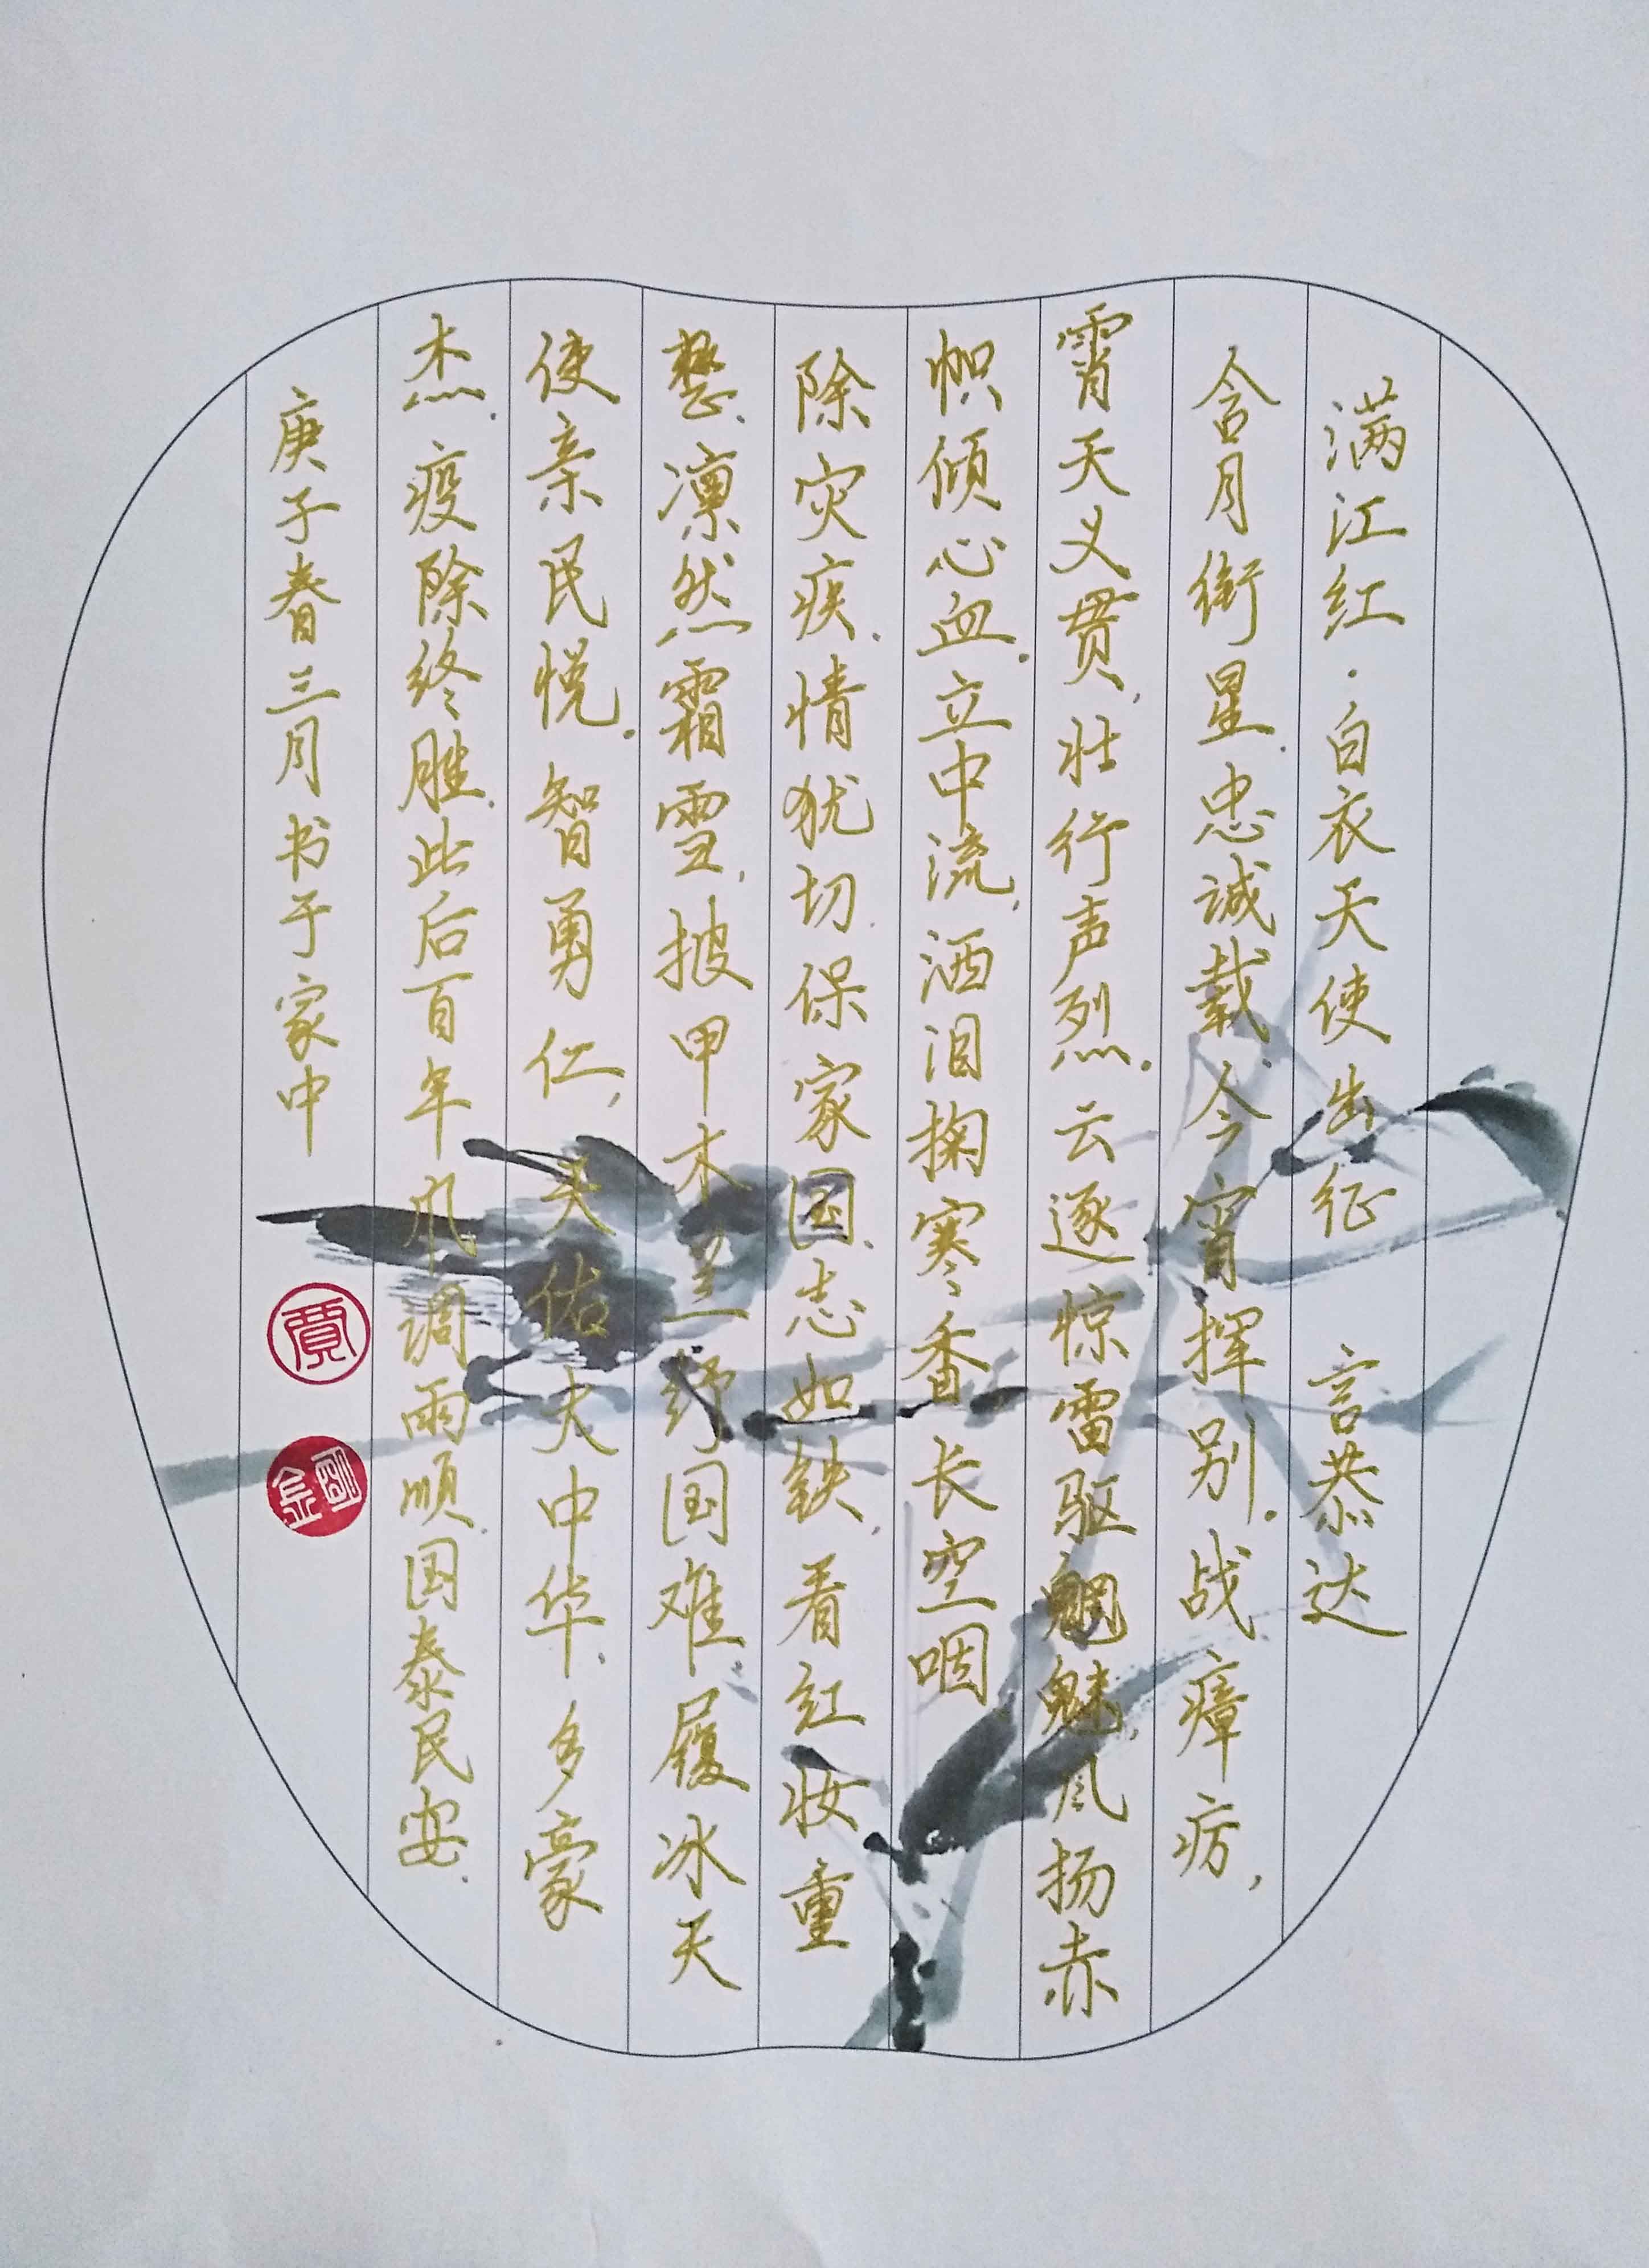 满江红·白衣天使出征 言恭达
含月衔星.忠诚载.今宵挥别.战瘴疠,
霄天义贯,壮行声烈.云逐惊雷驱魍魅,风扬赤
帜倾心血.立中流,洒泪掬寒香长空咽
除灾疾.情犹切.保家国.志如铁,看红妆重
整.凛然霜雪,披甲木兰纾国难,履冰天
使亲民悦.智勇仁,天佑大中华、多豪
杰.疫除终胜.此后百年风调雨顺.国泰民安.
庚子春三月书于家中